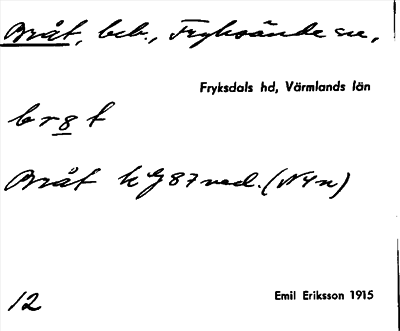 Bråt, beb., Fryksände sn,
Fryksdals hd, Värmlands län
br8t
Bråt hg 87 ned. (N4n)
12
Emil Eriksson 1915